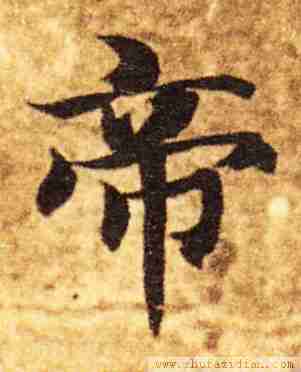 帝
www.shufazidian.com